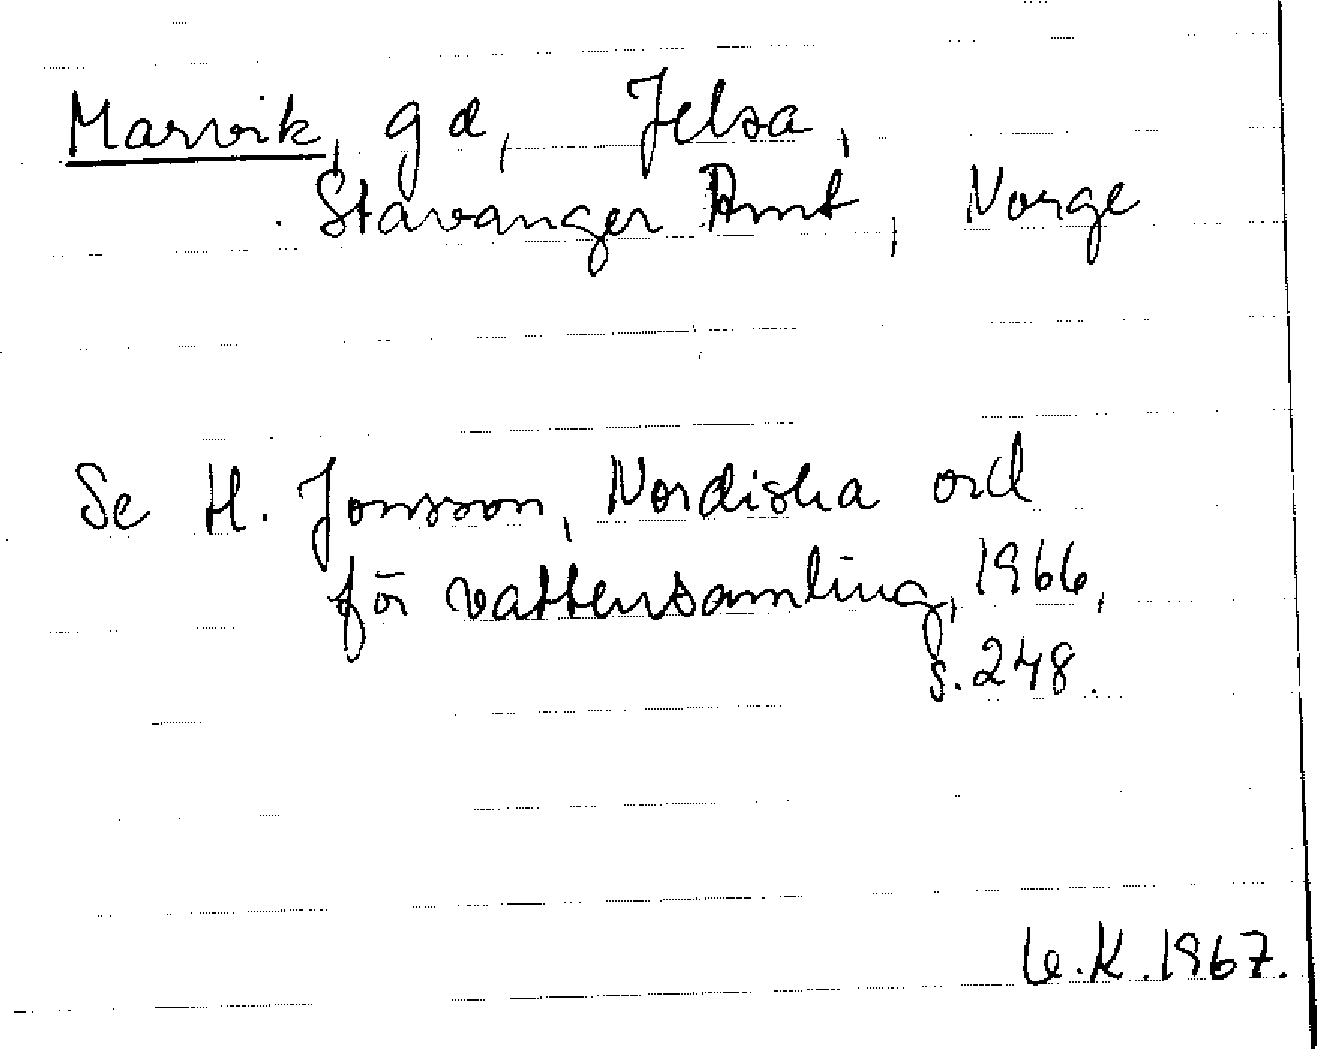 Marvik, gd, Jelsa,
Stavanger Amt, Norge
Se H. Jonsson, Nordiska ord
för vattensamling, 1966,
s. 248.
K. 1967.